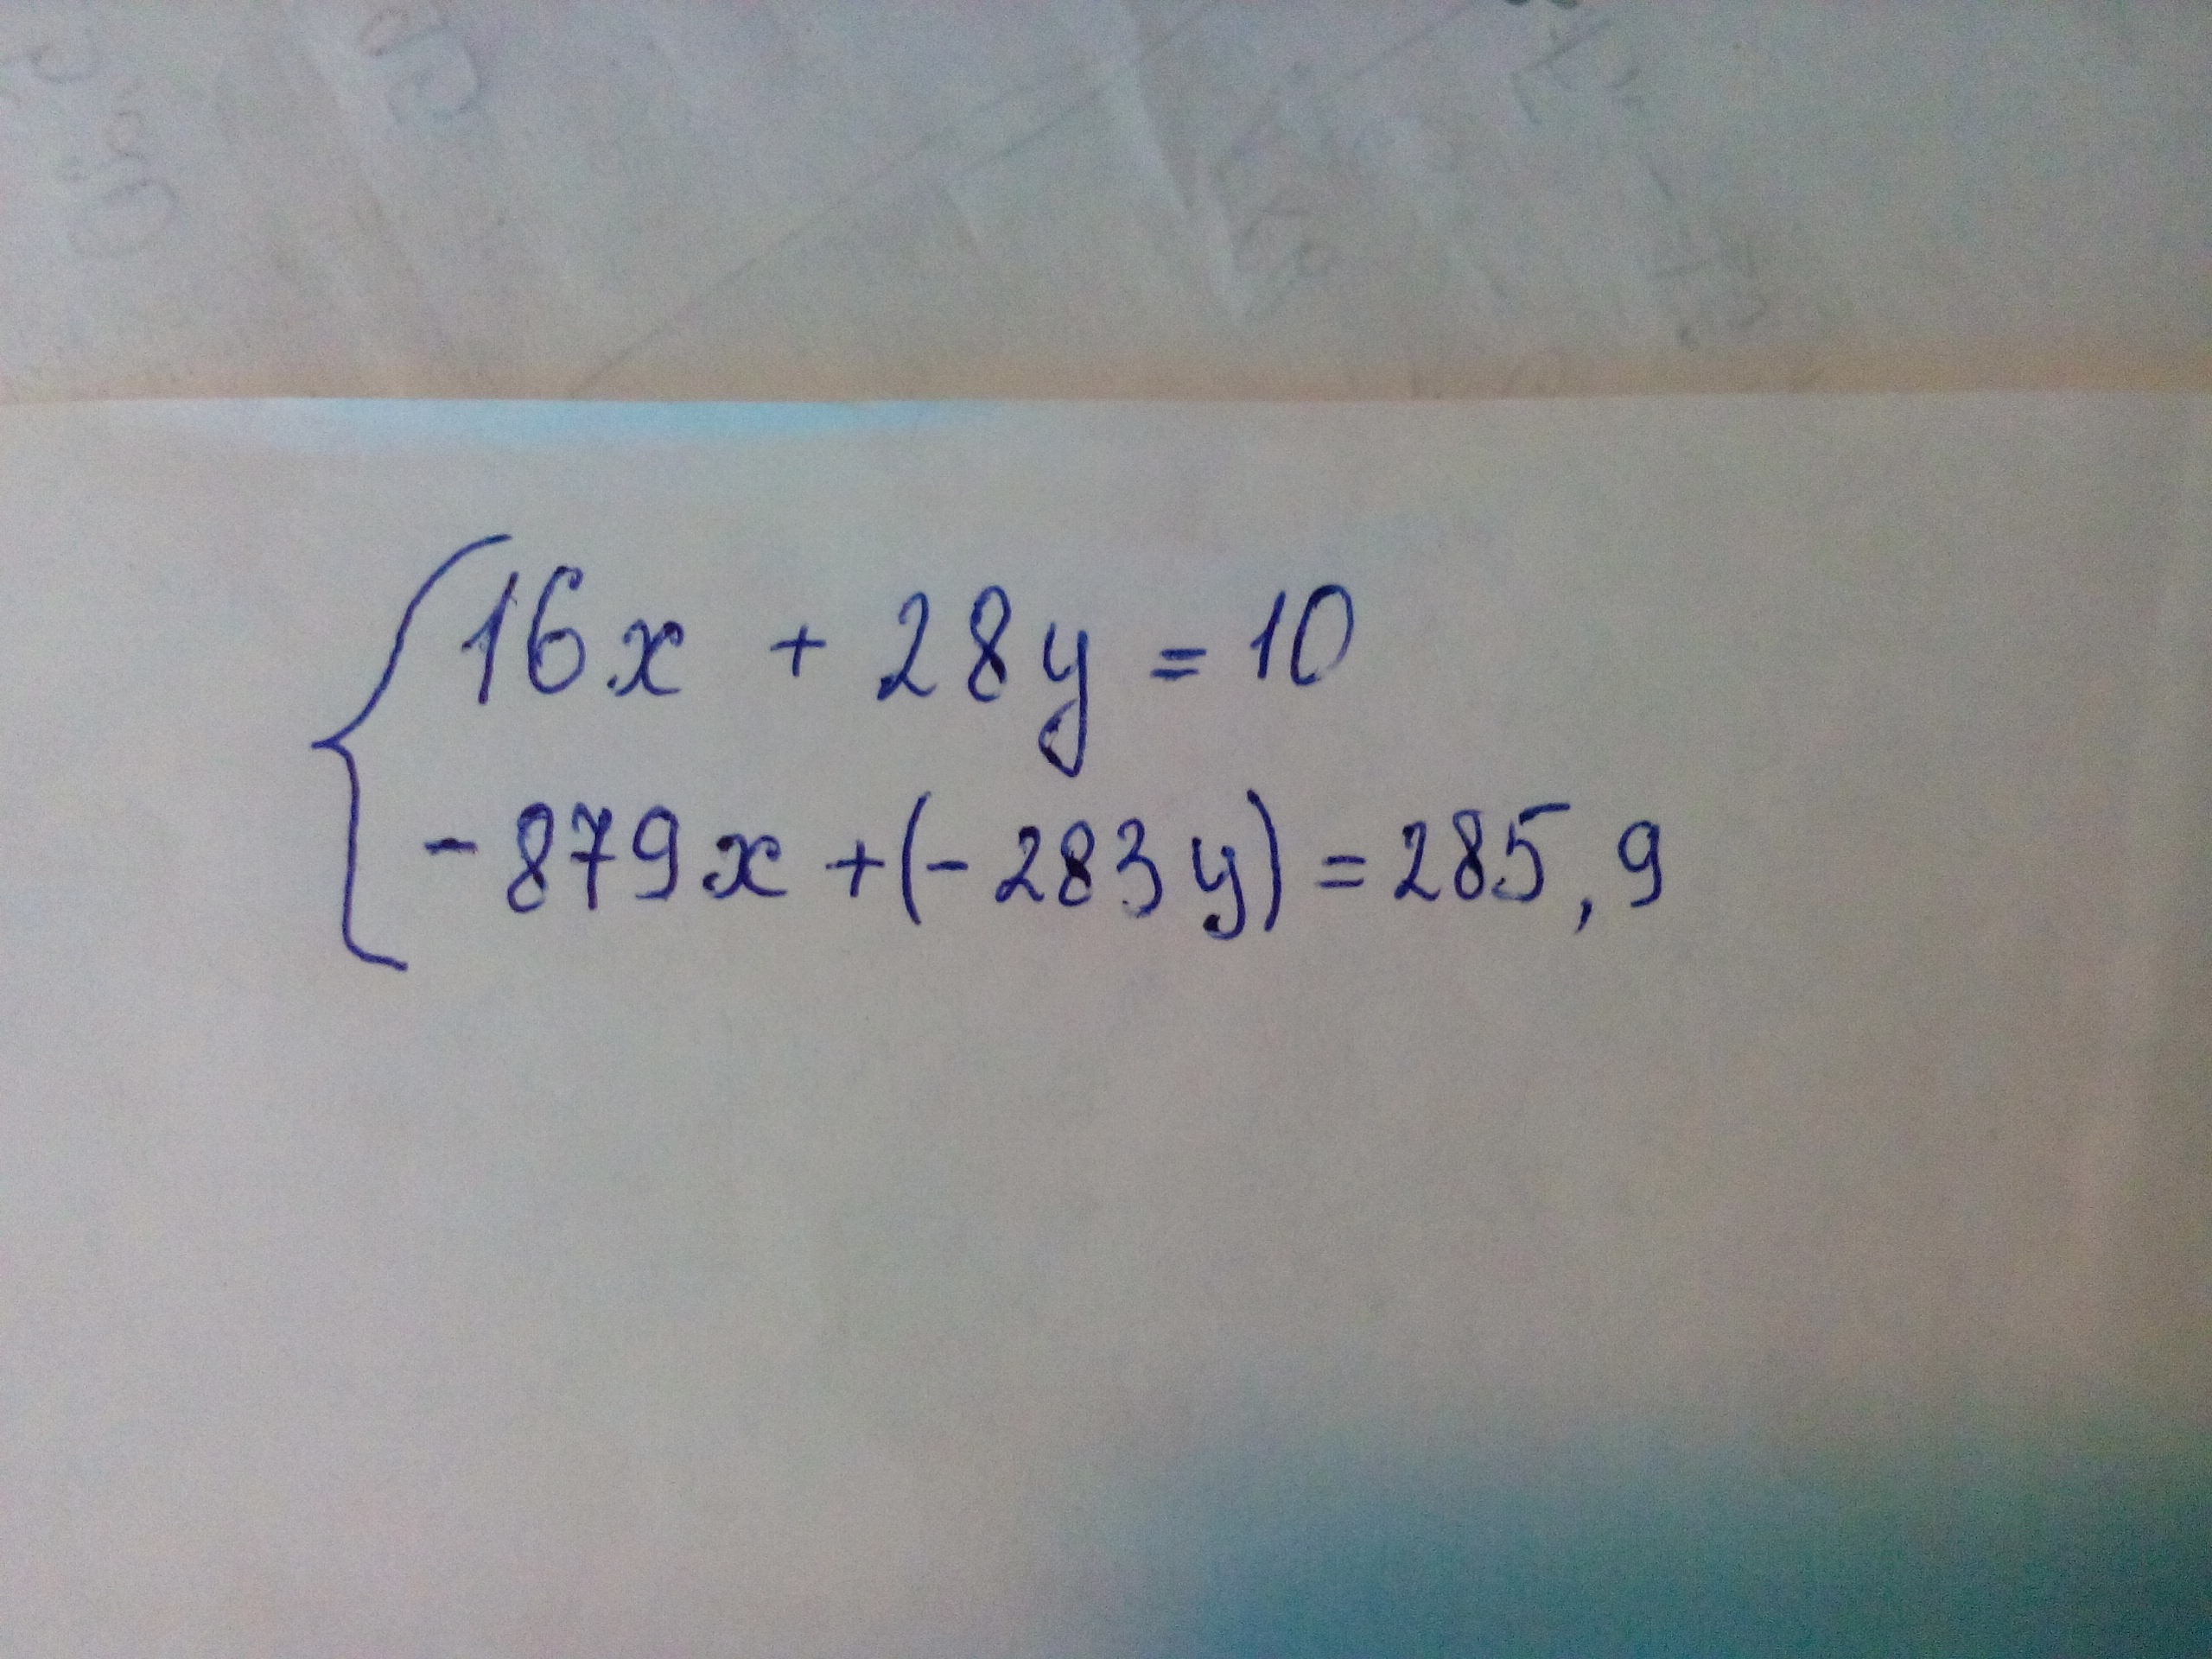 16x + 28y = 10
-879x + (-283y) = 285,9